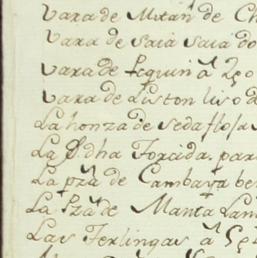 Vara de Mitan de Ch
Vara de Saia Saia do
Vara de Pequin a 250
Vara de Liston liso d
La honza de seda floja
La D.dha Torcida, para
La pza de Cambaya be
La Pza de Manta Lam
Las Terlingas a